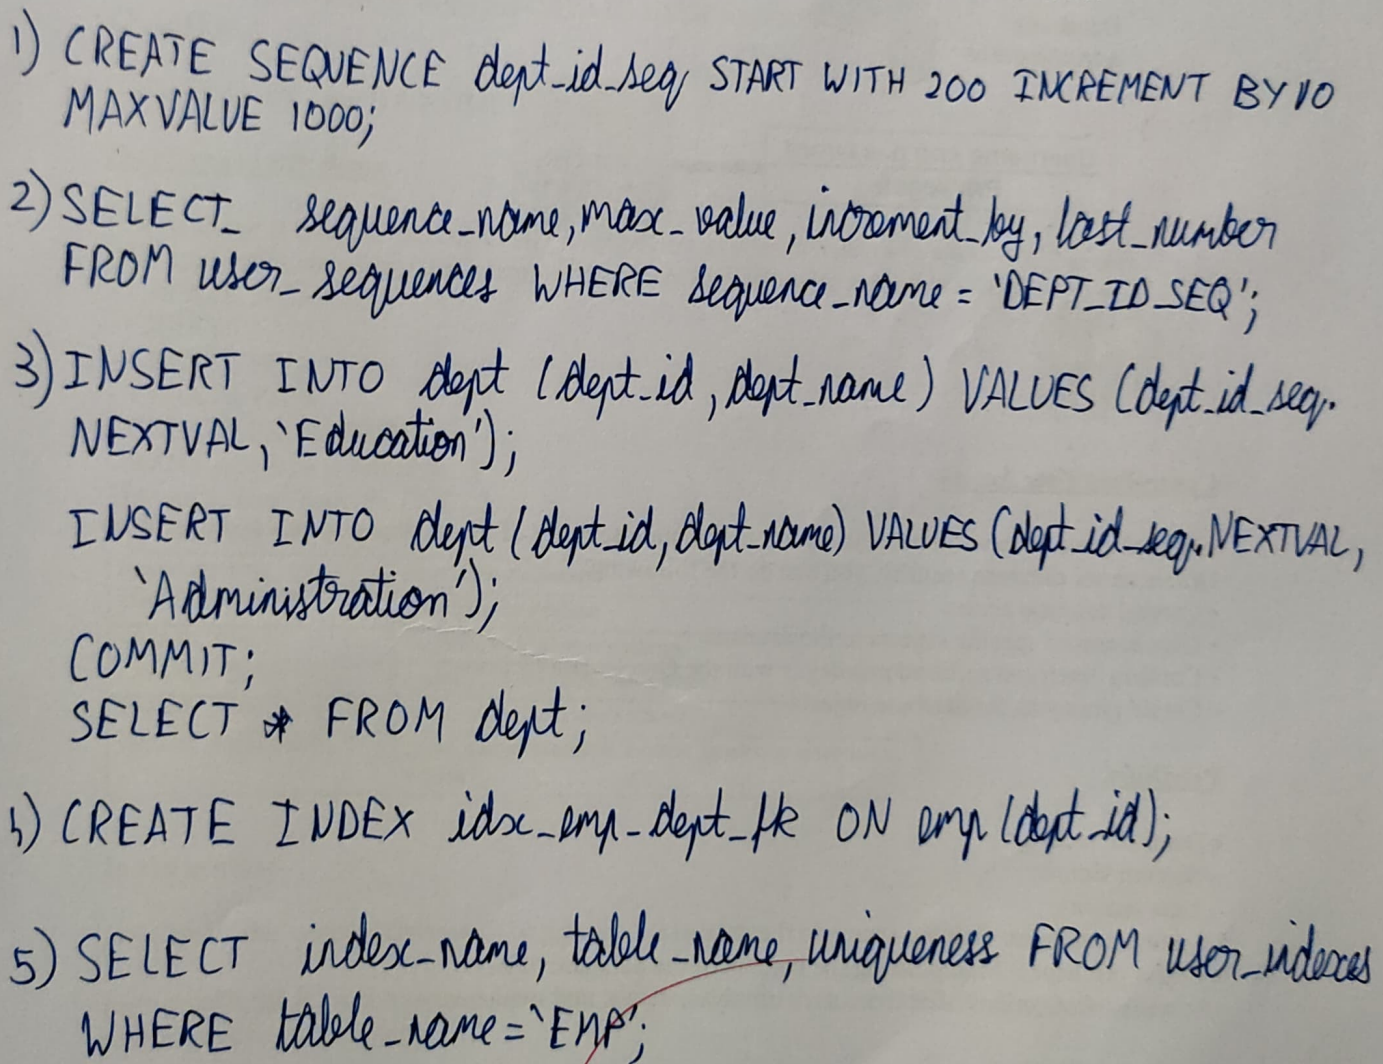 1) CREATE SEQUENCE dept_id_seq START WITH 200 INCREMENT BY 10
MAXVALUE 1000;
2) SELECT sequence_name, max_value, increment_by, last_number
FROM user_sequences WHERE sequence_name = 'DEPT_ID_SEQ';
3) INSERT INTO dept (dept_id, dept_name) VALUES (dept_id_seq.
NEXTVAL, 'Education');
INSERT INTO dept (dept_id, dept_name) VALUES (dept_id_seq.NEXTVAL,
'Administration');
COMMIT;
SELECT * FROM dept;
4) CREATE INDEX idx_emp_dept_fk ON emp (dept_id);
5) SELECT index_name, table_name, uniqueness FROM user_indexes
WHERE table_name = 'EMP';